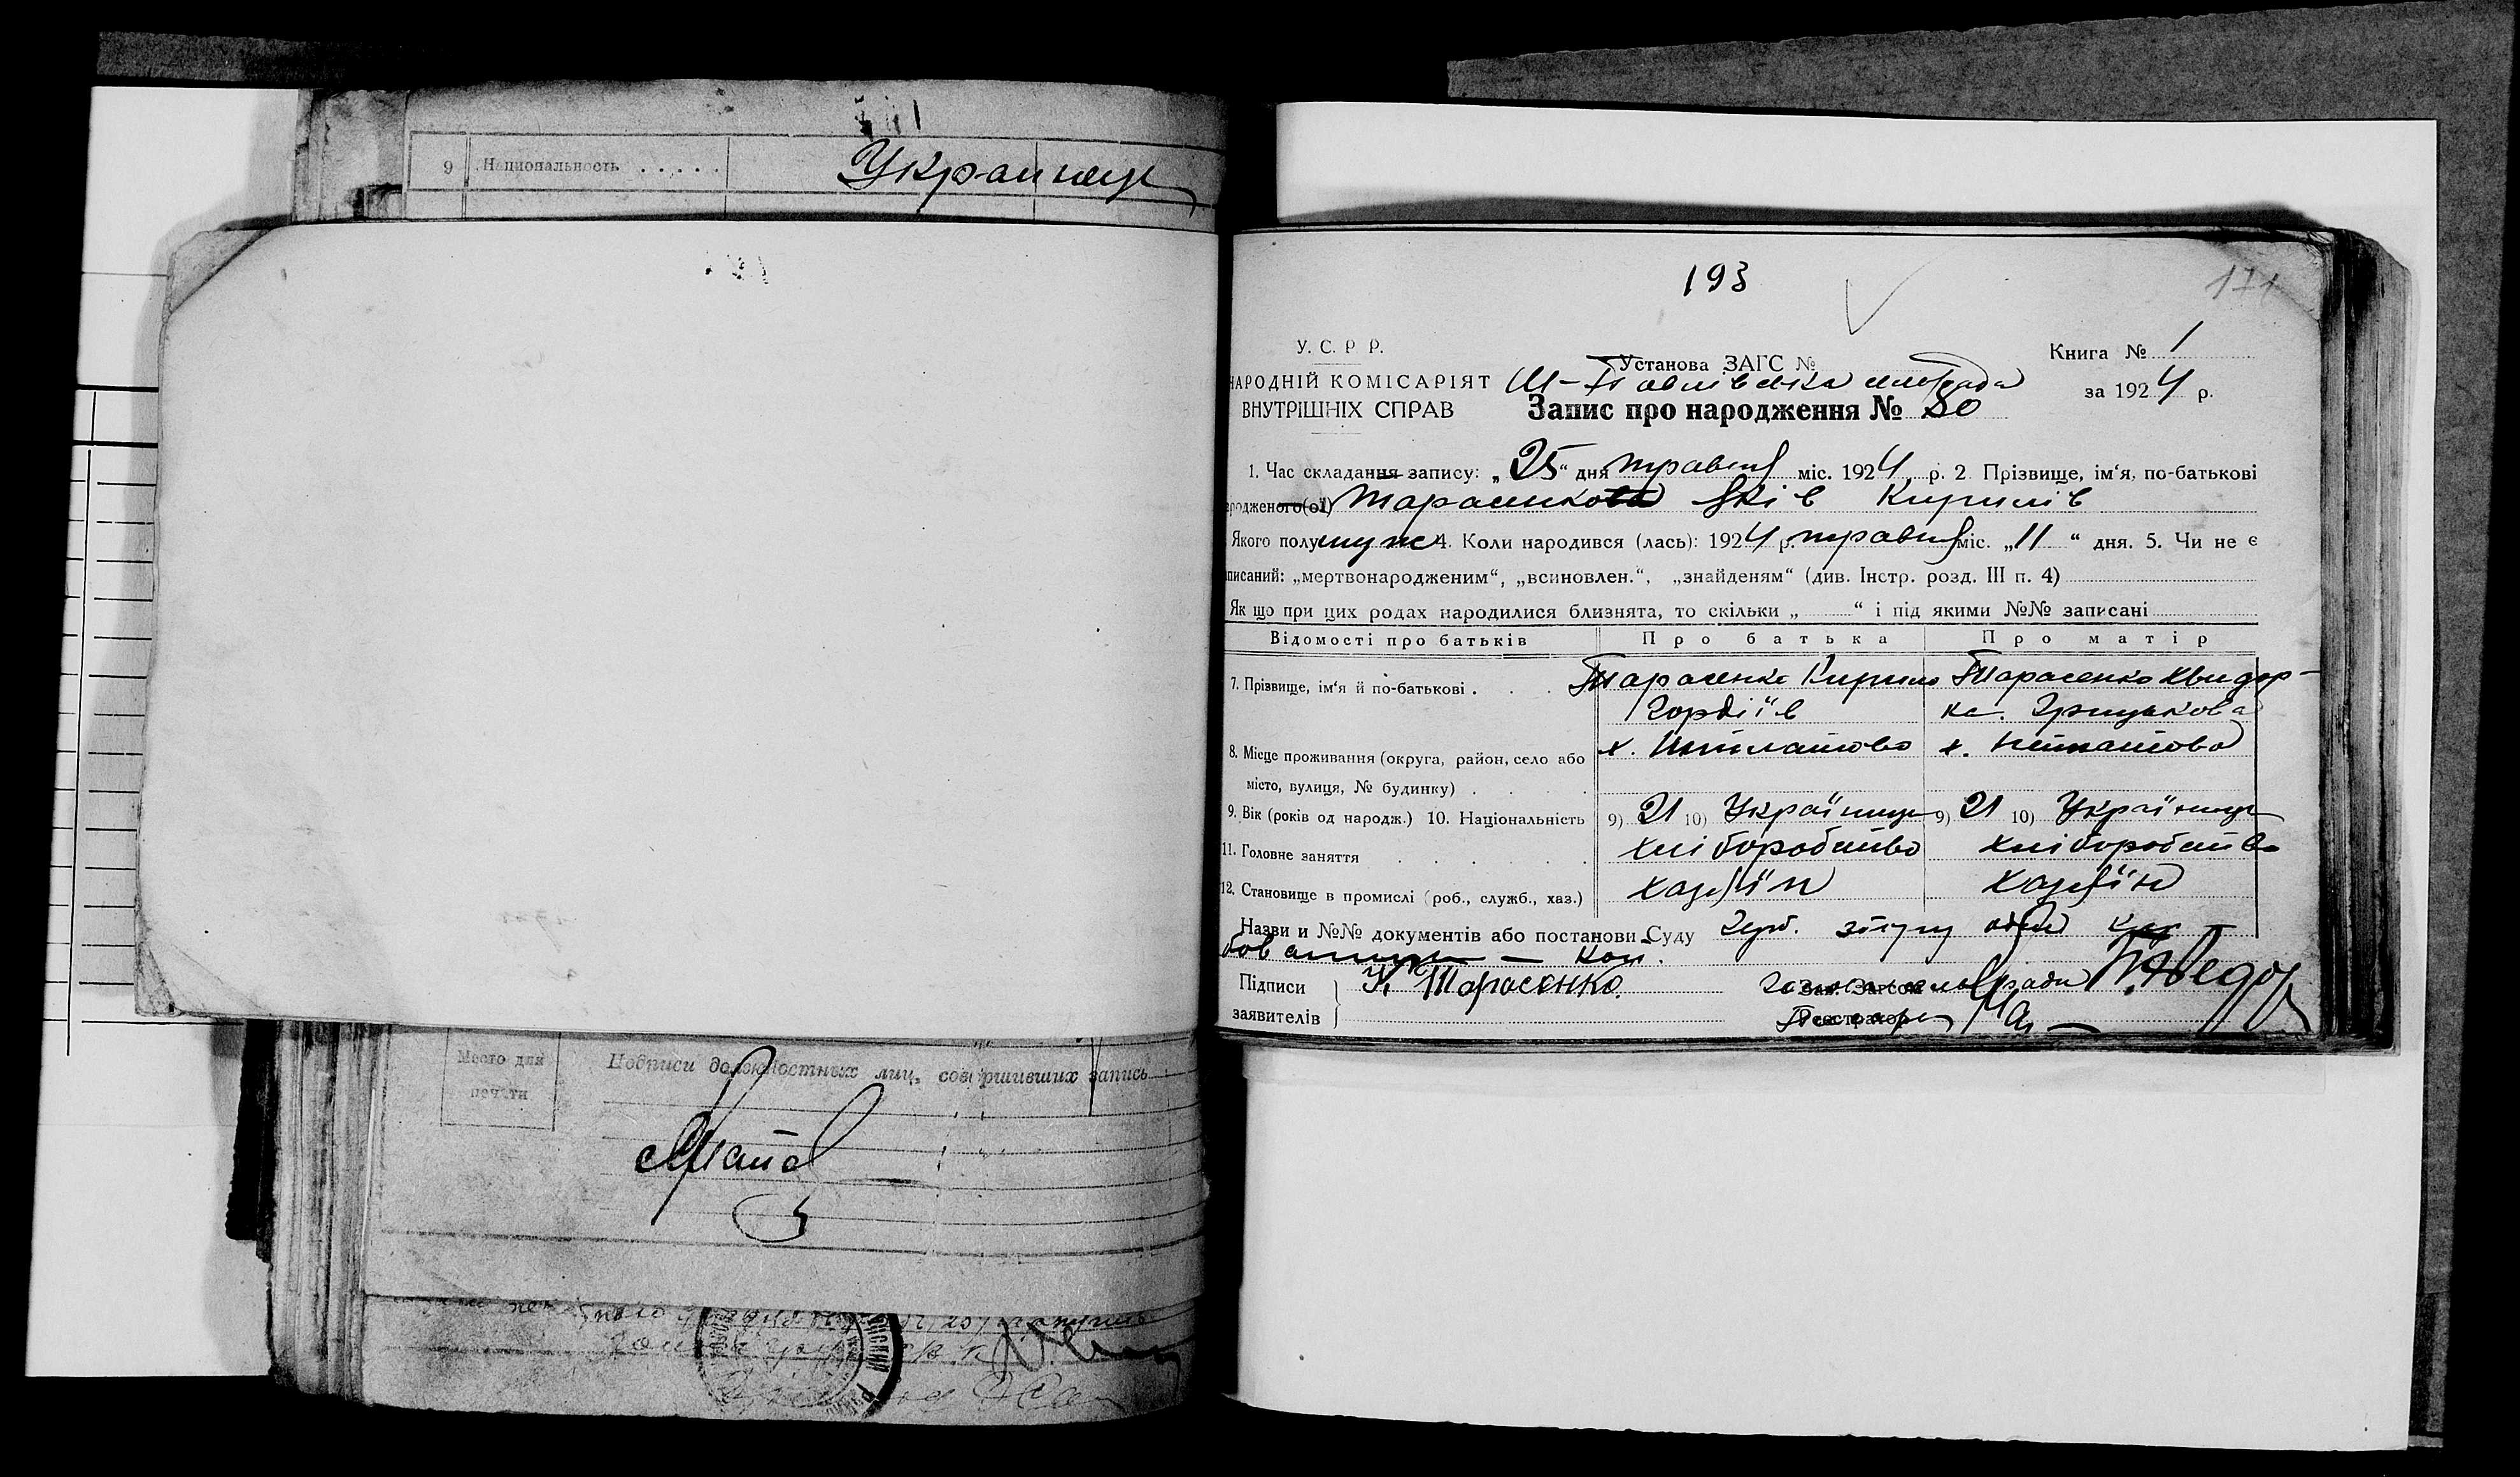 9 Национальность . . . . . Украинец
Место для
печати
Подписи должностных лиц, совершивших запись
193
171
У. С. Р. Р.
НАРОДНІЙ КОМІСАРІЯТ
ВНУТРІШНІХ СПРАВ
Установа ЗАГС №
Павлівська сільрада
Запис про народження № 80
Книга № 1
за 1924 р.
1. Час складання запису: „25“ дня травня міс. 1924 р. 2. Прізвище, ім'я, по-батькові
родженого(ої) Тарасенко Яків Кирилів
Якого полу муж 4. Коли народився (лась): 1924 р. травня міс. „11“ дня. 5. Чи не є
писаний: „мертвонародженим“, „всиновлен.“, „знайденям“ (див. Інстр. розд. III п. 4)
Як що при цих родах народилися близнята, то скільки „ “ і під якими №№ записані
Відомості про батьків Про батька Про матір
7. Прізвище, ім'я й по-батькові . . . Тарасенко Кирило Тарасенко Хведор-
Гордіїв ка. Грицькова
8. Місце проживання (округа, район, село або х. х.
місто, вулиця, № будинку) . . .
9. Вік (років од народж.) 10. Національність 9) 21 10) Українець 9) 21 10) Українець
11. Головне заняття . . . . . . хліборобство хліборобство
12. Становище в промислі (роб., служб., хаз.) хазяїн хазяїн
Назви и №№ документів або постанови Суду
Підписи К Тарасенко. Зав. Загсом
заявителів Реєстратор